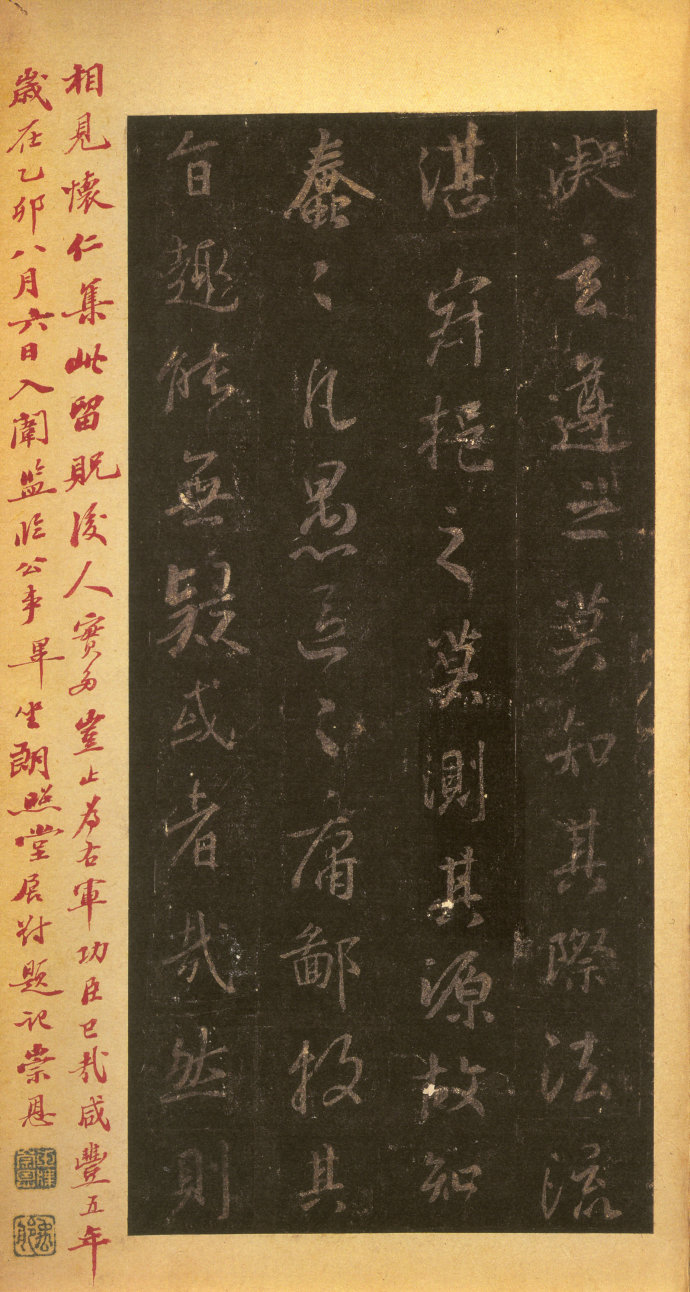 凝玄遵之莫知其際法流
湛寂挹之莫測其源故知
蠢々凡愚區々庸鄙投其
旨趣能無疑或者哉然則
相見懷仁集此留貺後人實多豈止為右軍功臣已哉咸豐五年
歲在乙卯八月六日入闈監臨公事畢坐朗照堂展對題記崇恩